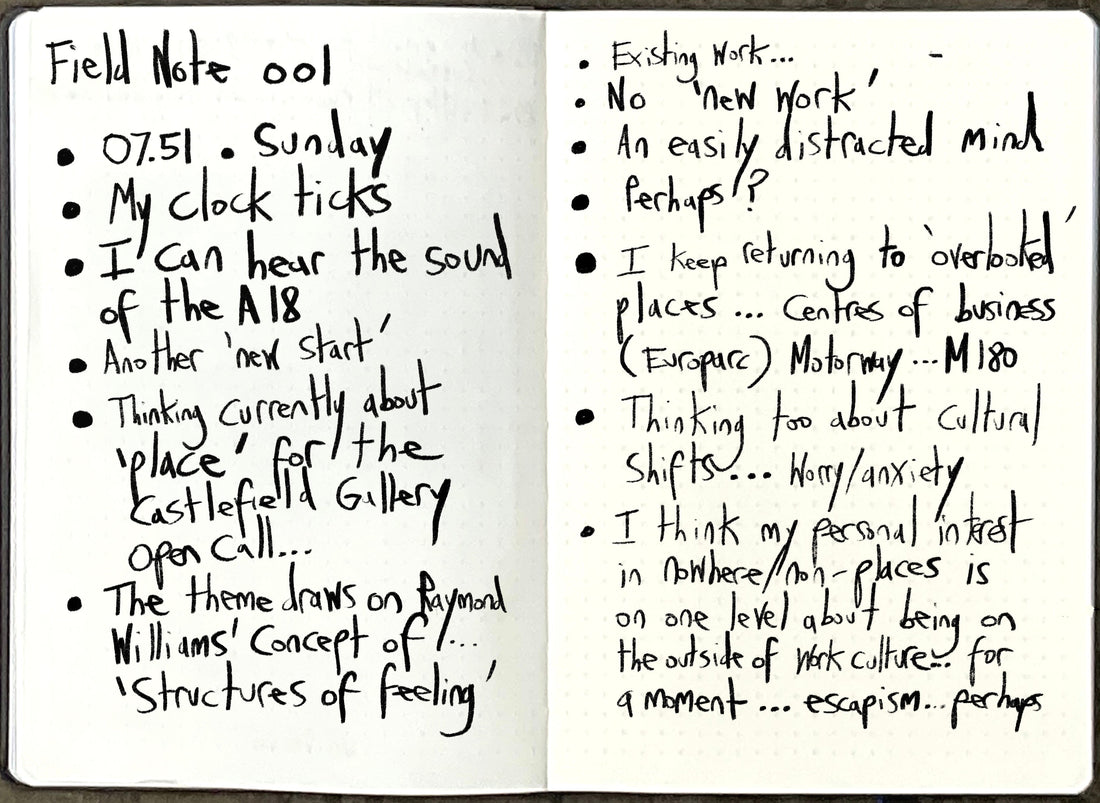 Field Note 001
• 07.51 • Sunday
• My clock ticks
• I can hear the sound
of the A18
• Another 'new start'
• Thinking currently about
'place' for the
Castlefield Gallery
Open Call...
• The theme draws on Raymond
Williams' Concept of ...
'Structures of feeling'
• Existing Work...
• No 'new work'
• An easily distracted mind
• Perhaps?
• I keep returning to 'overlooked'
places ... Centres of business
(Europarc) Motorway ... M180
• Thinking too about Cultural
Shifts... Worry/anxiety
• I think my personal interest
in nowhere/non-places is
on one level about being on
the outside of work culture... for
a moment ... escapism... perhaps